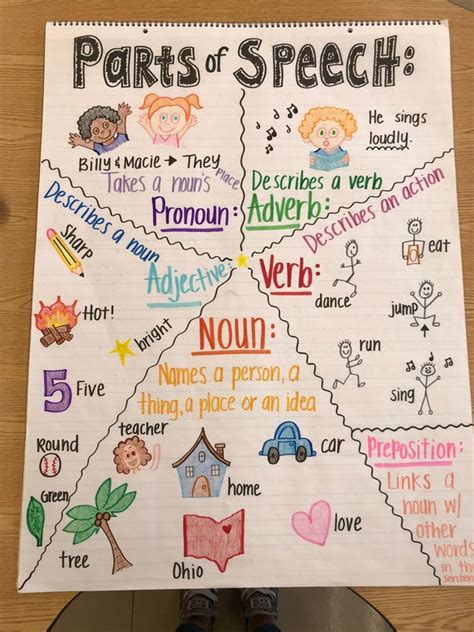 Parts of Speech:
Billy & Macie → They
Takes a noun's place
Pronoun:
He sings
loudly.
Describes a verb
Adverb:
Describes a noun
Adjective:
Sharp
Hot!
bright
5 Five
Round
Green
Describes an action
Verb:
eat
dance
jump
run
sing
Noun:
Names a person, a
thing, a place or an idea
teacher
home
car
tree
Ohio
love
Preposition:
Links a
noun w/
other
words
in the